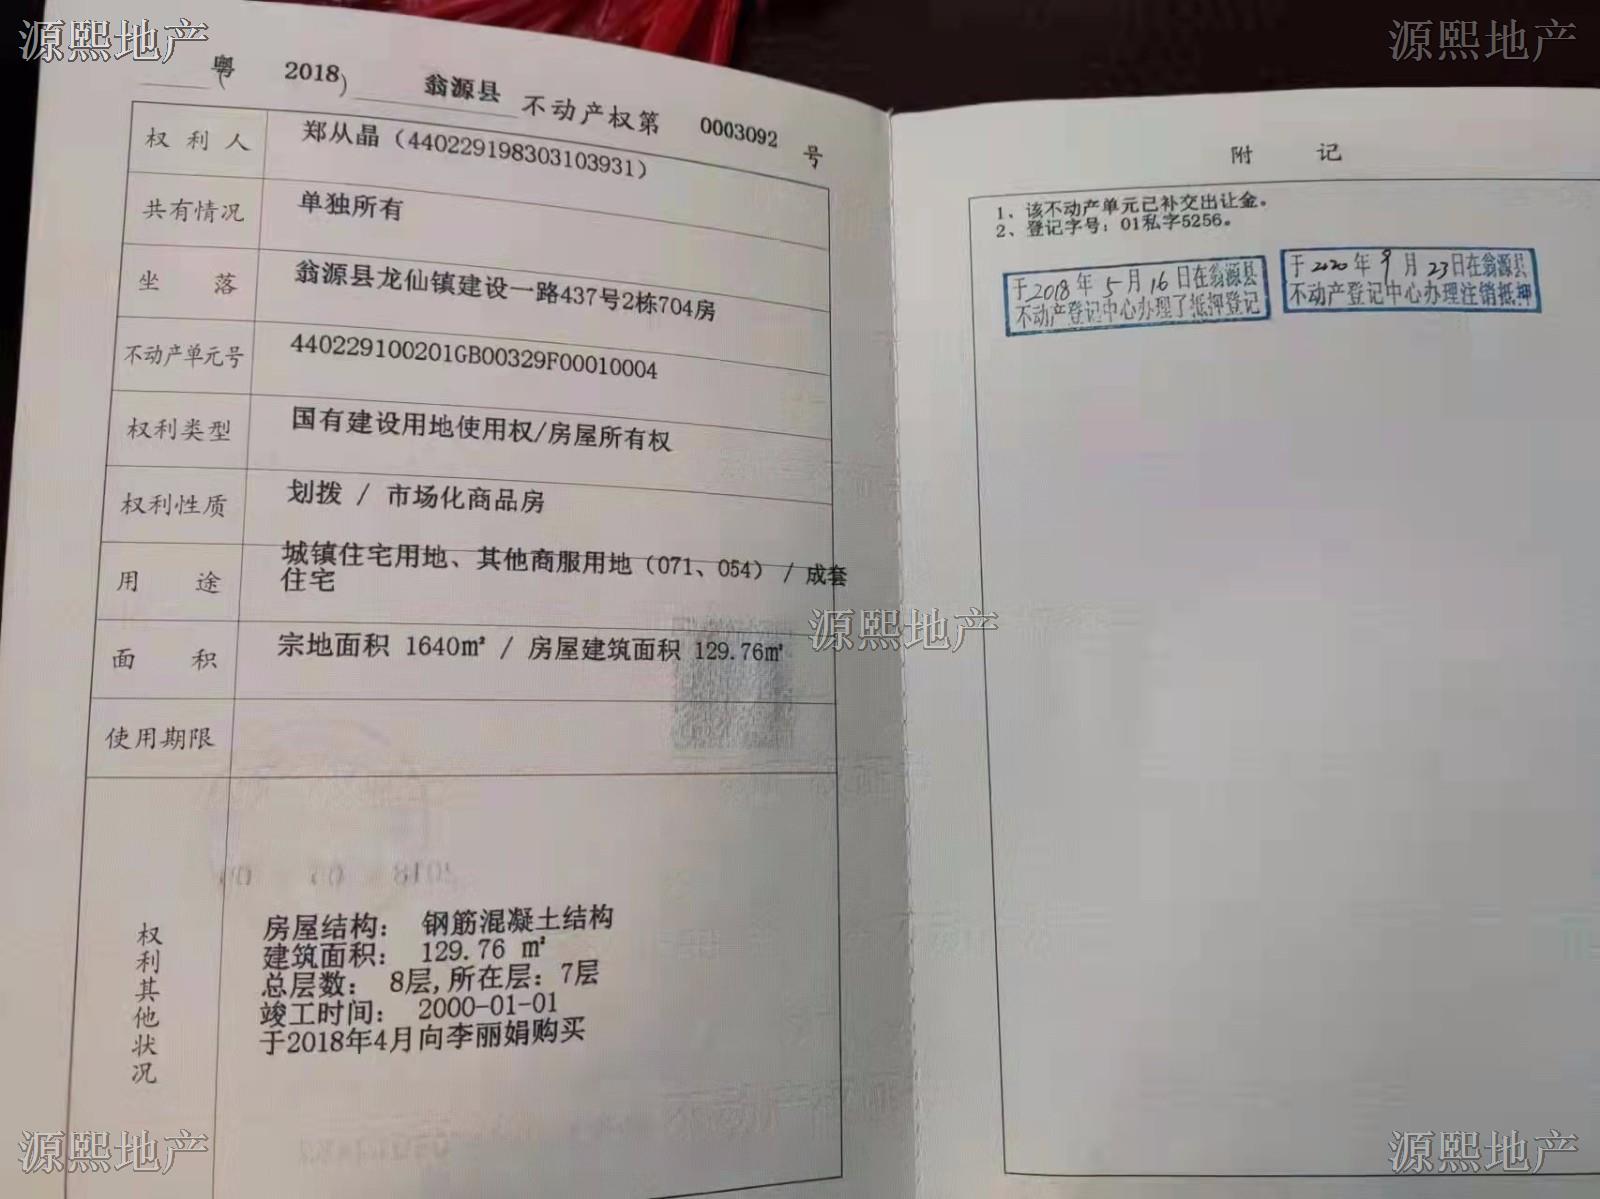 源熙地产
源熙地产
粤（ 2018） 翁源县 不动产权第 0003092 号
权利人 郑从晶（440229198303103931）
共有情况 单独所有
坐落 翁源县龙仙镇建设一路437号2栋704房
不动产单元号 440229100201GB00329F00010004
权利类型 国有建设用地使用权/房屋所有权
权利性质 划拨 / 市场化商品房
用途 城镇住宅用地、其他商服用地（071、054） / 成套
住宅
面积 宗地面积 1640㎡ / 房屋建筑面积 129.76㎡
使用期限
权利其他状况
房屋结构： 钢筋混凝土结构
建筑面积： 129.76 ㎡
总层数： 8层,所在层：7层
竣工时间： 2000-01-01
于2018年4月向李丽娟购买
附记
1、该不动产单元已补交出让金。
2、登记字号：01私字5256。
于2018年5月16日在翁源县
不动产登记中心办理了抵押登记
于2020年9月23日在翁源县
不动产登记中心办理注销抵押
源熙地产
源熙地产
源熙地产